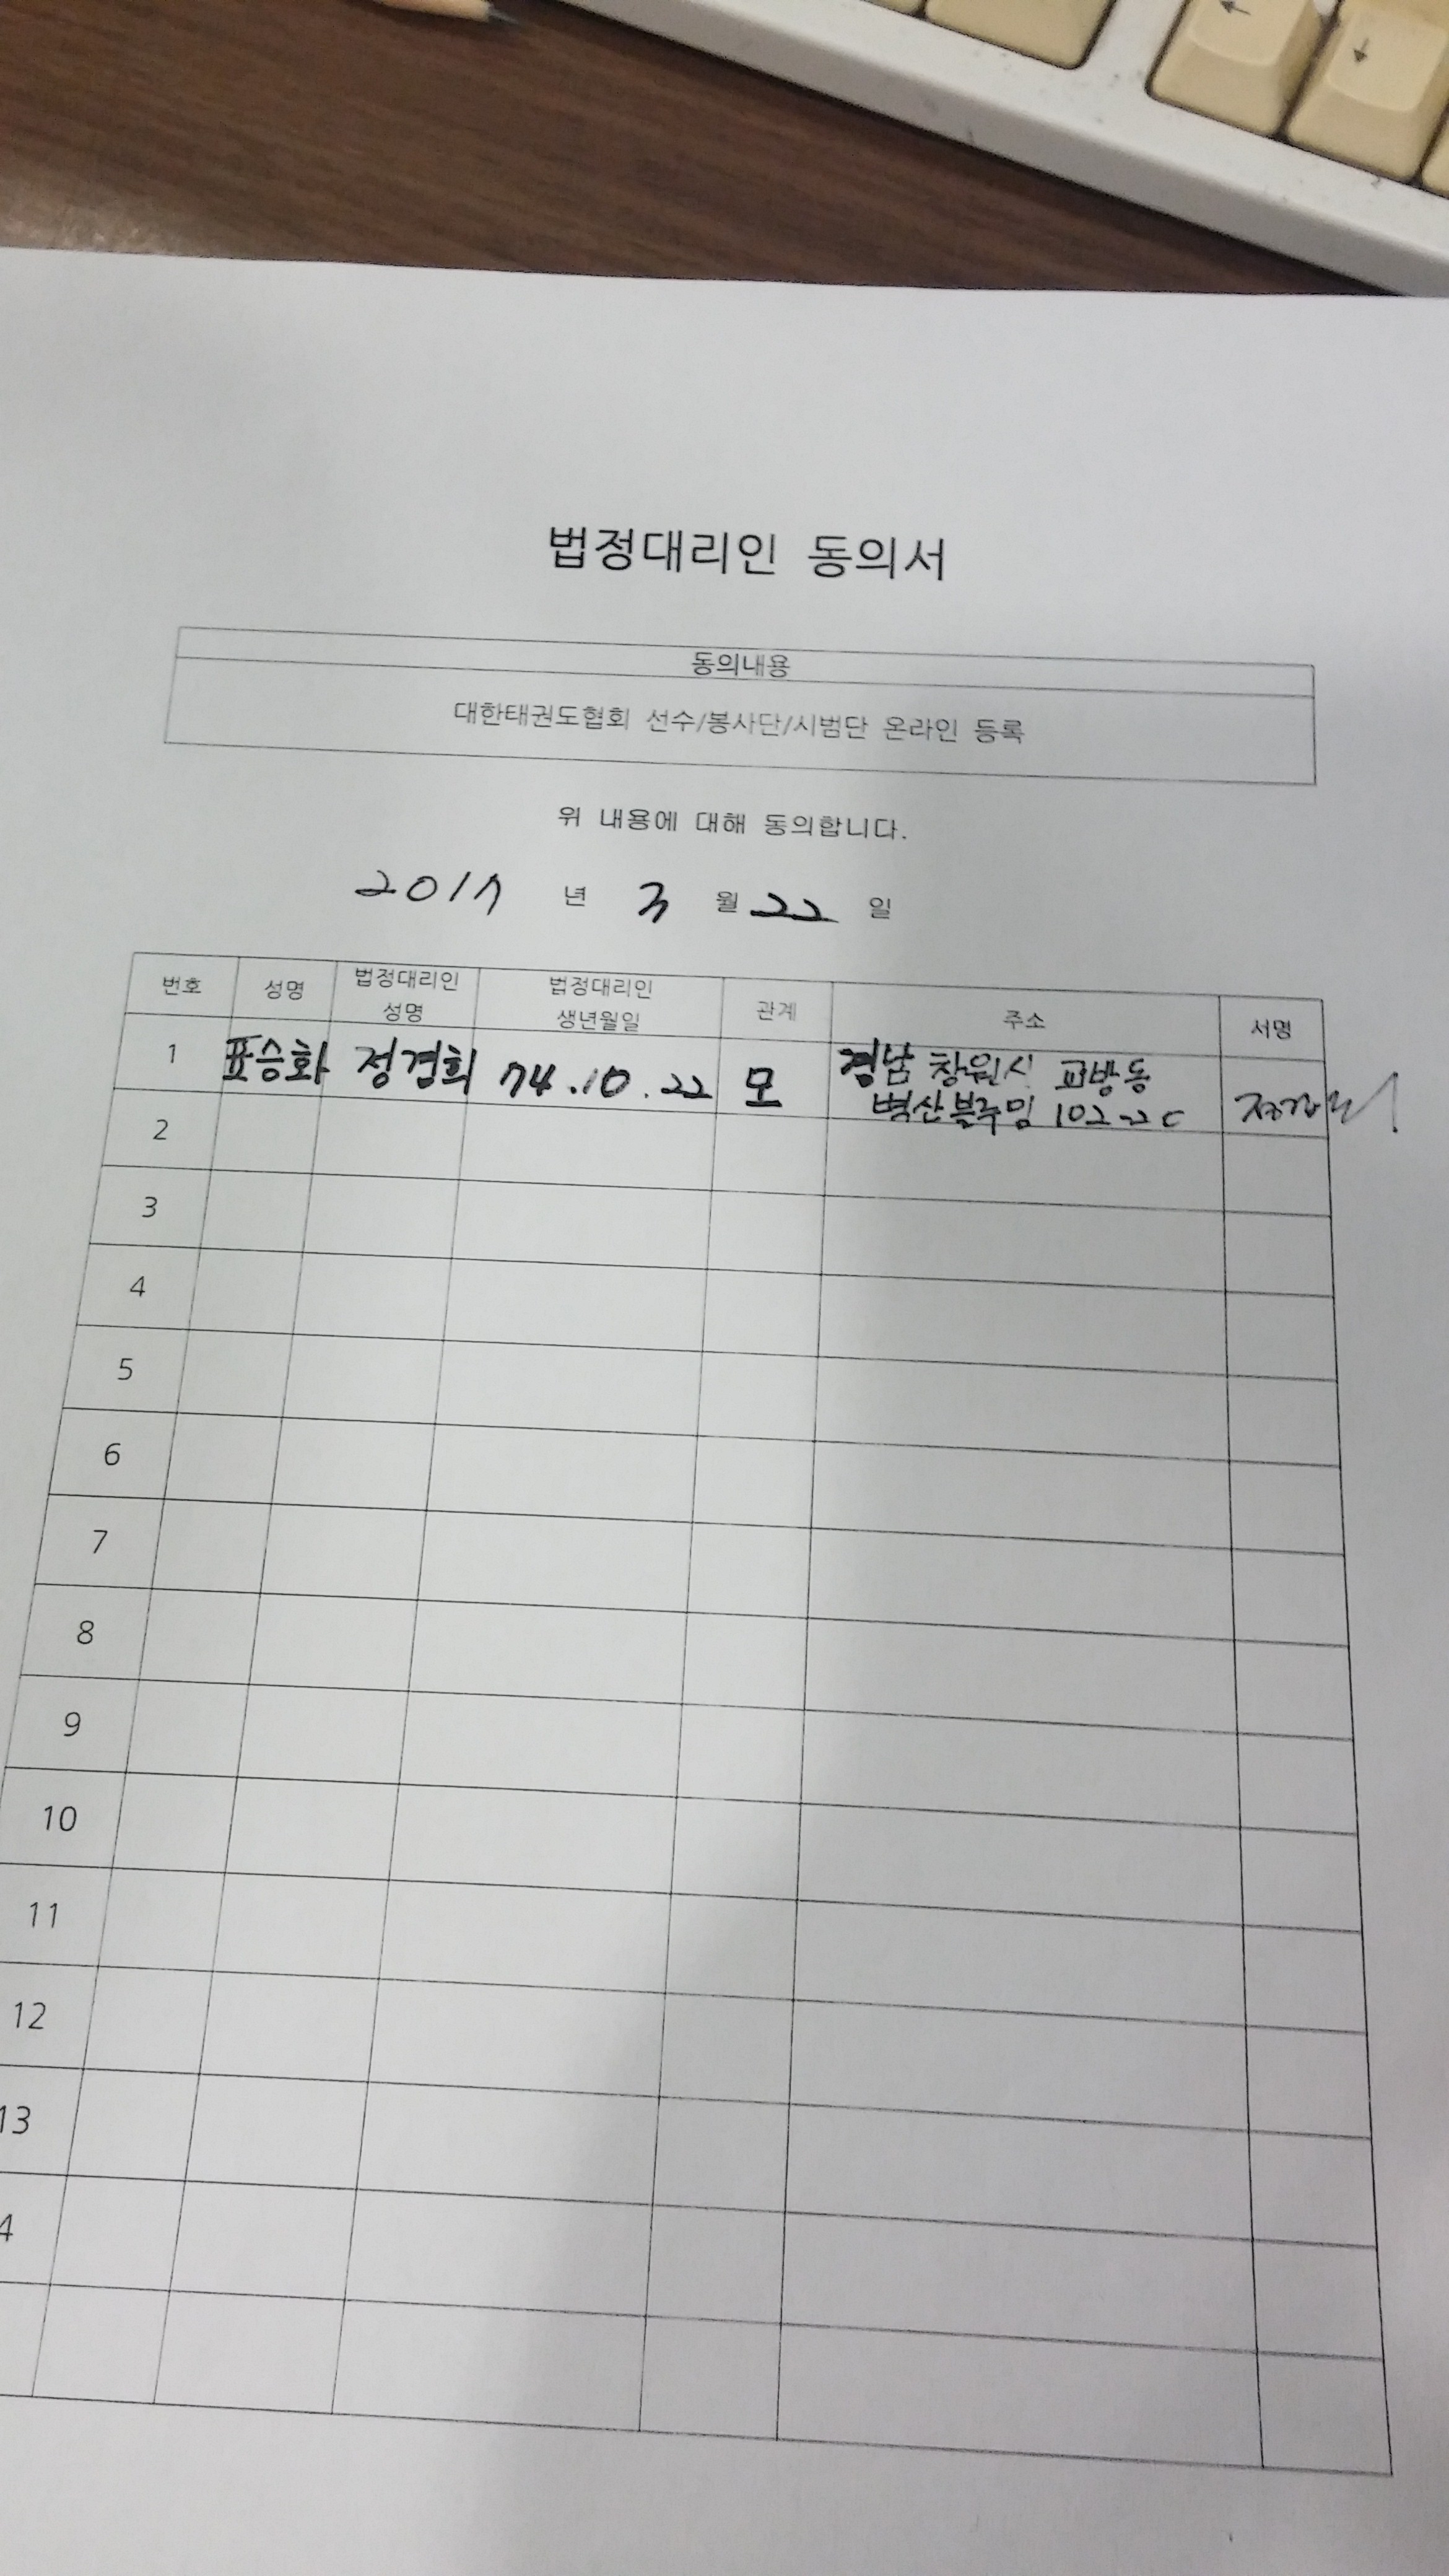 법정대리인 동의서
동의내용
대한태권도협회 선수/봉사단/시범단 온라인 등록
위 내용에 대해 동의합니다.
2017 년 3 월 22 일
번호 성명 법정대리인 성명 법정대리인 생년월일 관계 주소 서명
1 표승화 정경희 74.10.22 모 경남 창원시 교방동
벽산블루밍
2
3
4
5
6
7
8
9
10
11
12
13
4